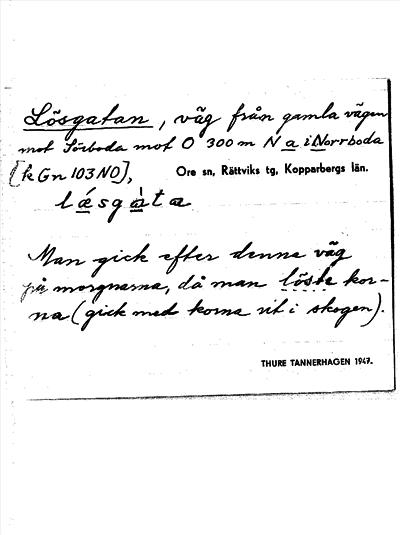 Lösgatan, väg från gamla vägen
mot Sörboda mot O 300 m N a i Norrboda
[k Gn 103 NO],
Ore sn, Rättviks tg, Kopparbergs län.
lǽsgàta
Man gick efter denna väg
på morgnarna, då man löste kor-
na (gick med korna vit i skogen).
THURE TANNERHAGEN 1947.